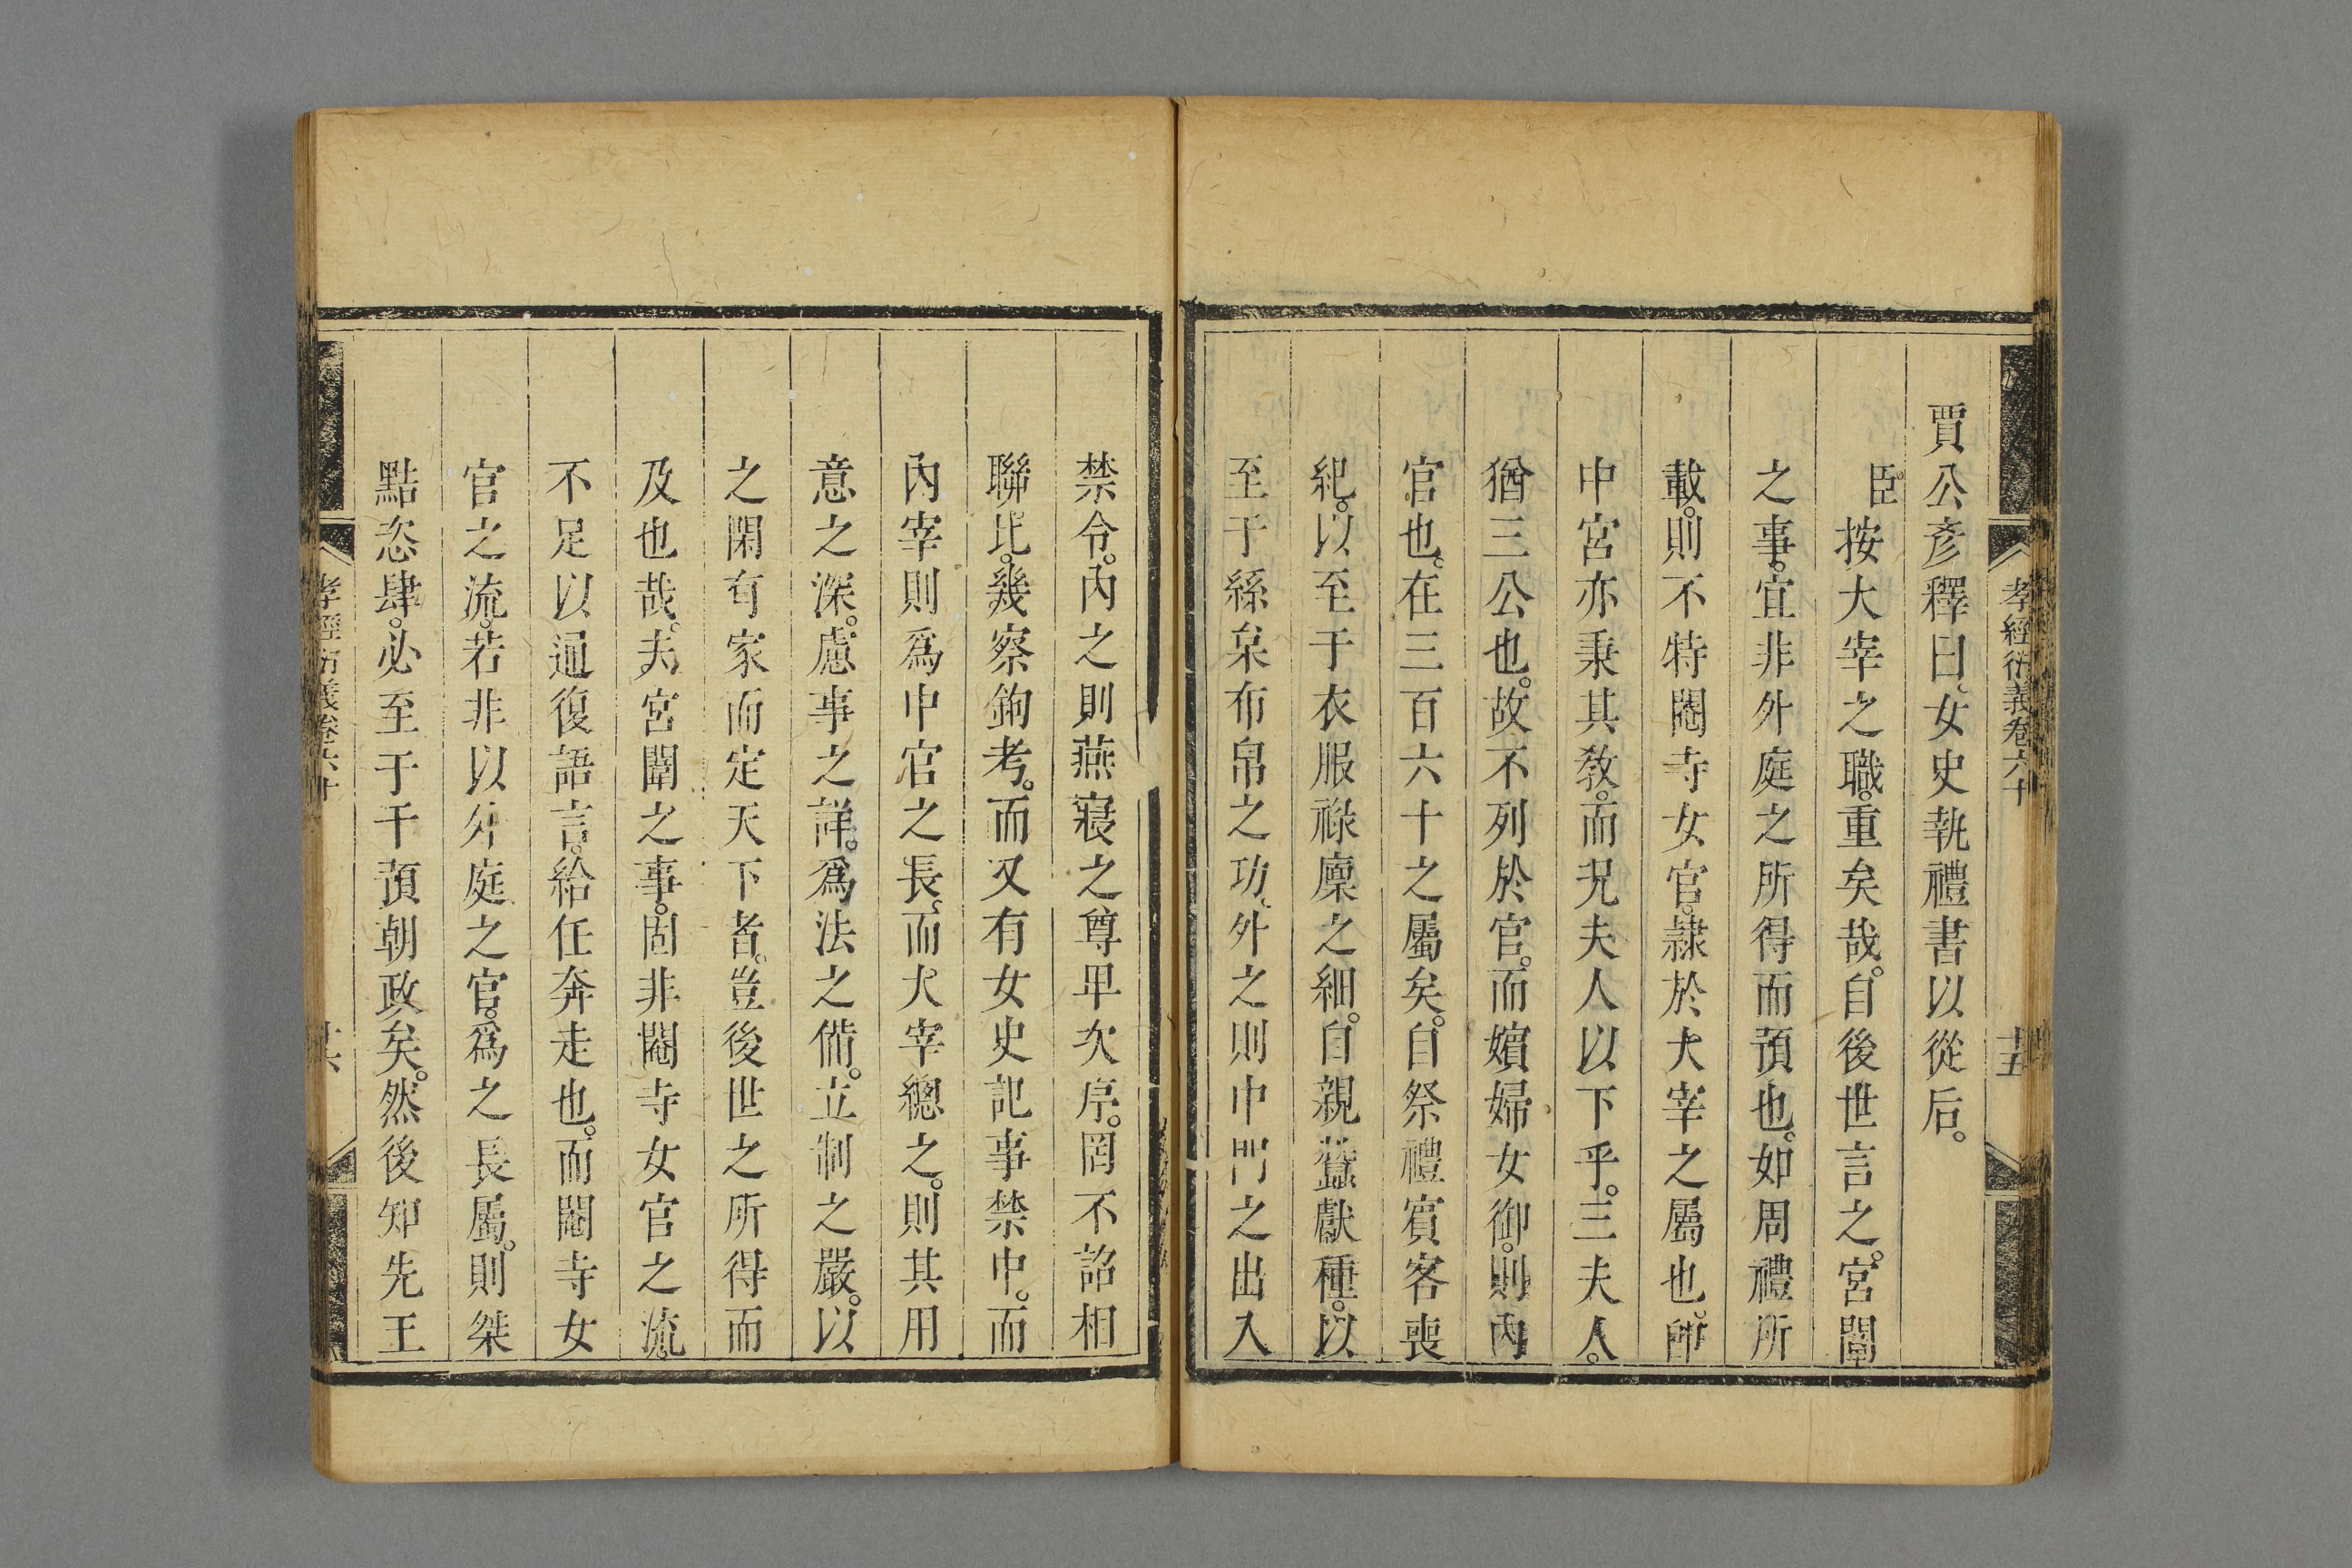 孝經衍義卷六十
十五
賈公彥釋曰女史執禮書以從后。
臣按大宰之職。重矣哉。自後世言之。宮闈
之事。宜非外庭之所得而預也。如周禮所
載。則不特閹寺女官。隷於大宰之屬也。卽
中宮亦秉其教。而況夫人以下乎。三夫人。
猶三公也。故不列於官。而嬪婦女御。則內
官也。在三百六十之屬矣。自祭禮賓客喪
紀。以至于衣服祿廩之細。自親蠶獻種。以
至于絲枲布帛之功。外之則中門之出入
禁令。內之則燕寢之尊卑次序。罔不詔相
聯比。幾察鉤考。而又有女史記事禁中。而
內宰則爲中官之長。而大宰總之。則其用
意之深。慮事之詳。爲法之備。立制之嚴。以
之閑有家而定天下者。豈後世之所得而
及也哉。夫宮闈之事。固非閹寺女官之流。
不足以通復語言。給任奔走也。而閹寺女
官之流。若非以外庭之官。爲之長屬。則桀
點恣肆。必至于干預朝政矣。然後知先王
孝經衍義卷六十
十六